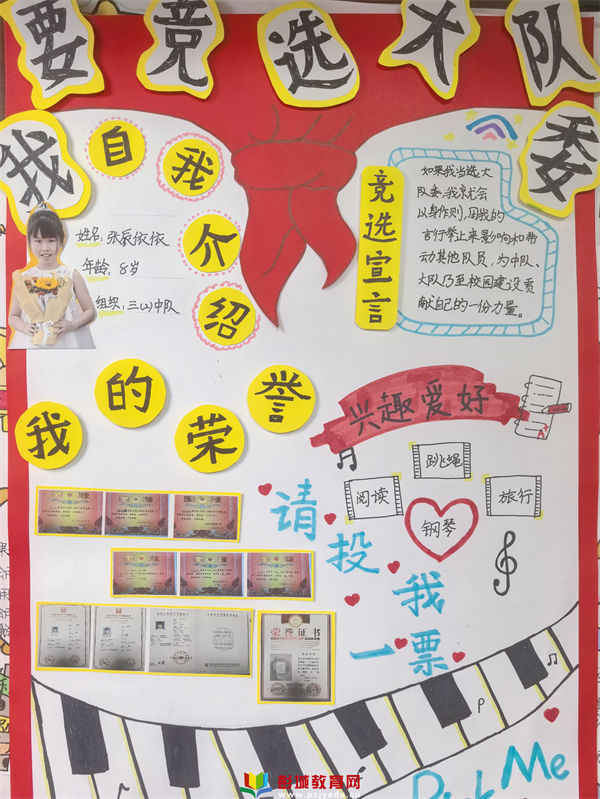 我要竞选大队委
自我介绍
姓名：张辰依依
年龄：8岁
组织：三(4)中队
竞选宣言
如果我当选大
队委，我就会
以身作则，用我的
言行举止来影响和带
动其他队员，为中队、
大队乃至校园建设贡
献自己的一份力量。
我的荣誉
荣誉证书
兴趣爱好
跳绳
阅读
旅行
钢琴
请投我一票
Pick Me
彭城教育网
www.pcjyedu.cn